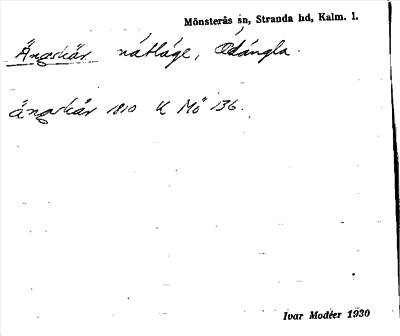 Mönsterås sn, Stranda hd, Kalm. l.
Ängskär nätläge, Ödängla.
ängskär 1810 K Mö 136.
Ivar Modéer 1930